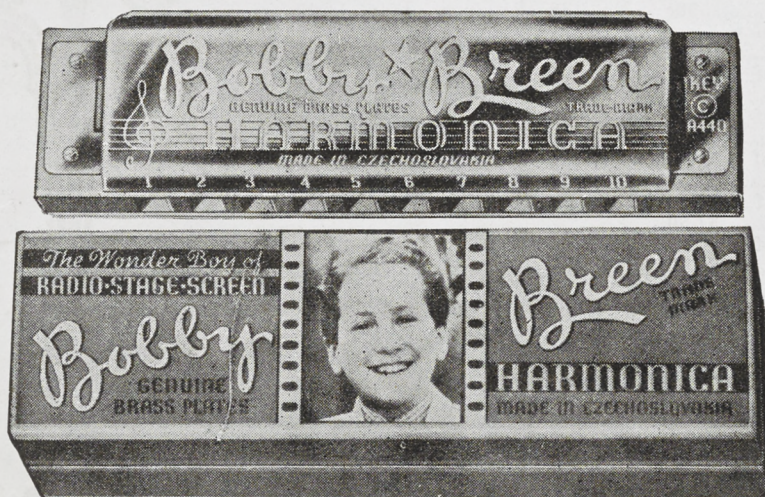 Bobby Breen
GENUINE BRASS PLATES TRADE-MARK
HARMONICA
MADE IN CZECHOSLOVAKIA
1 2 3 4 5 6 7 8 9 10
KEY
C
A440
The Wonder Boy of
RADIO·STAGE·SCREEN
Bobby
GENUINE
BRASS PLATES
Breen
TRADE
MARK
HARMONICA
MADE IN CZECHOSLOVAKIA